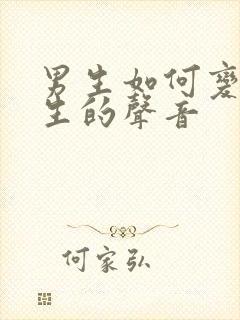 男生如何變
生的聲音
何家弘